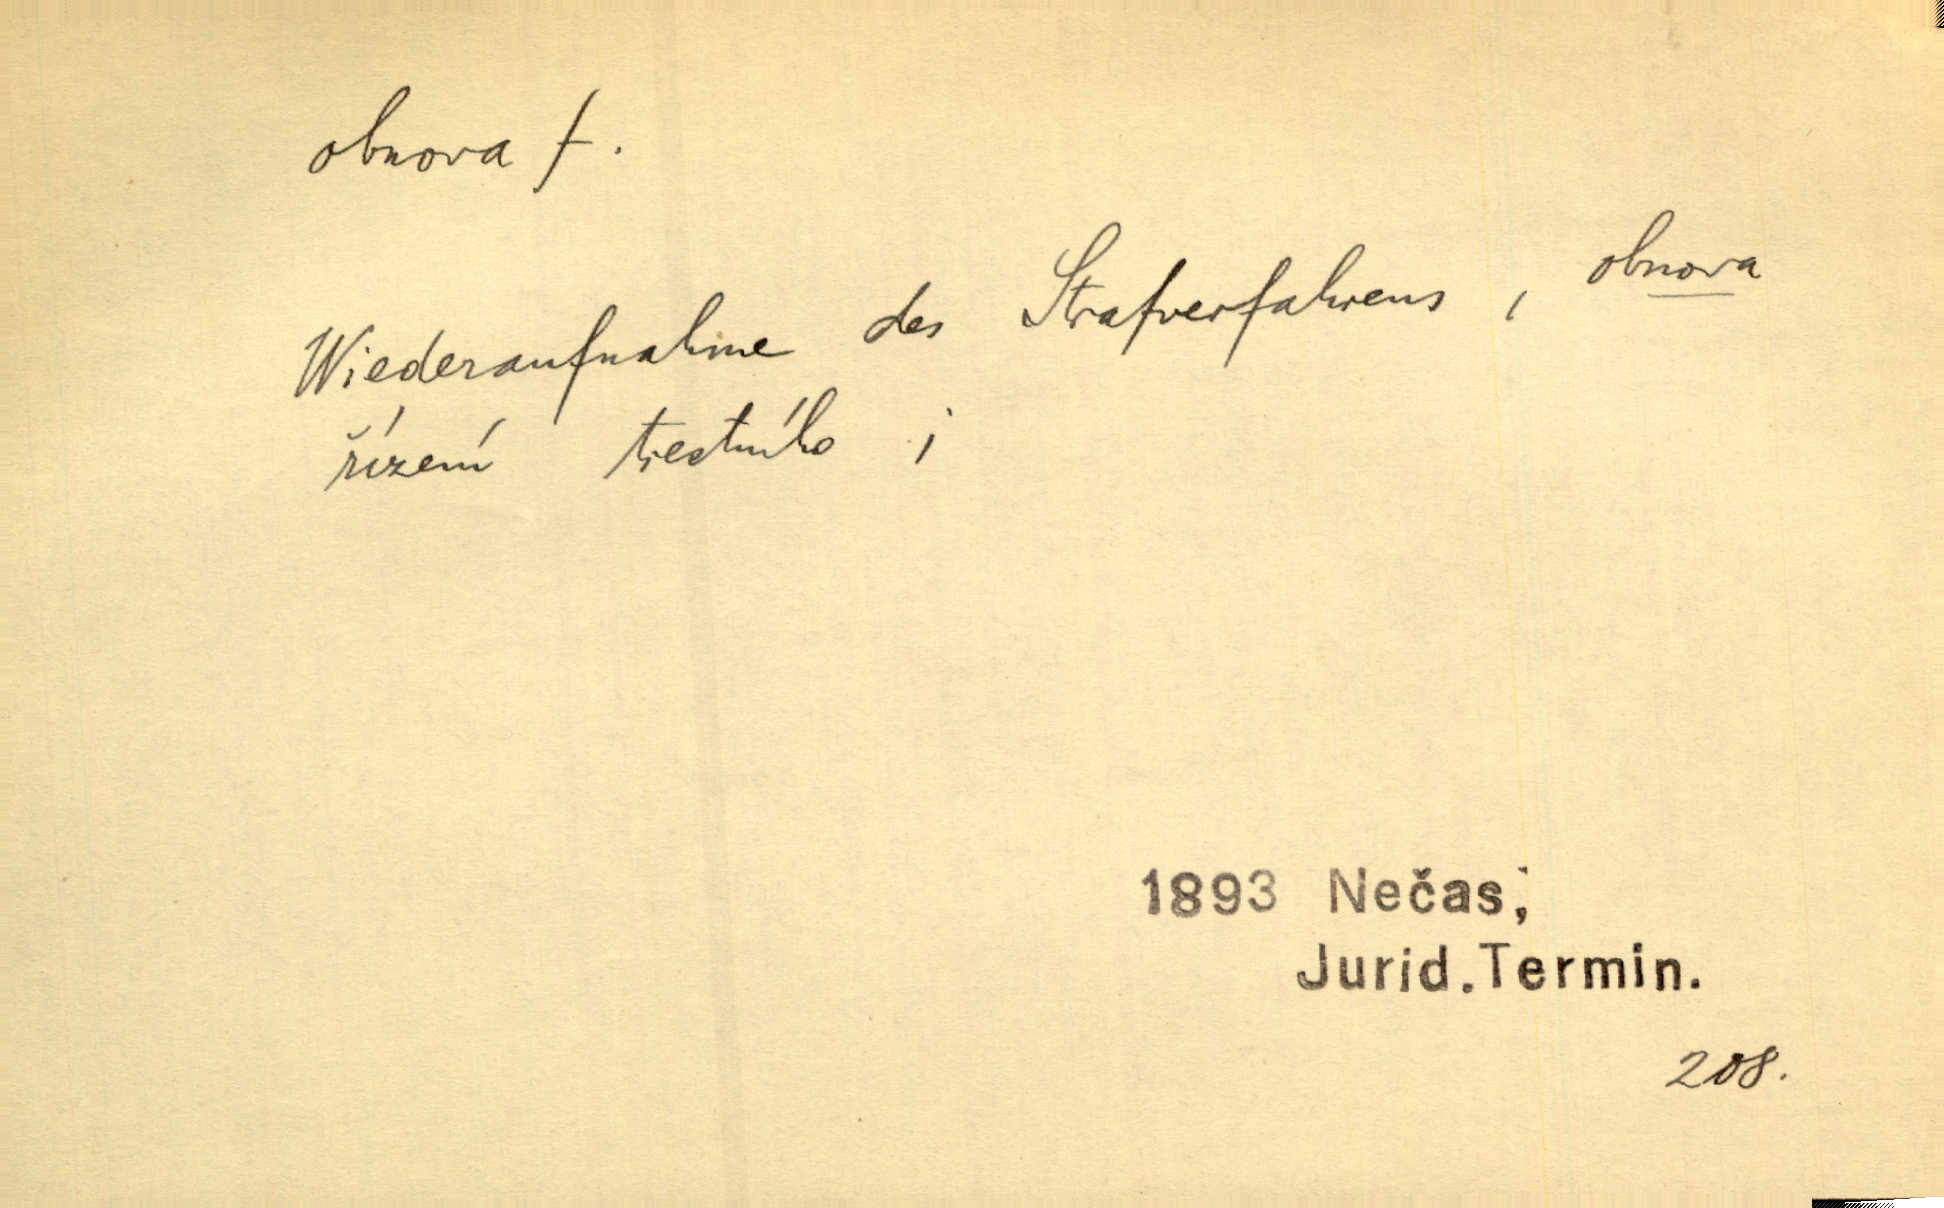 obnova f.
Wiederaufnahme des Strafverfahrens, obnova
řízení trestního ;
1893 Nečas,
Jurid.Termin.
208.